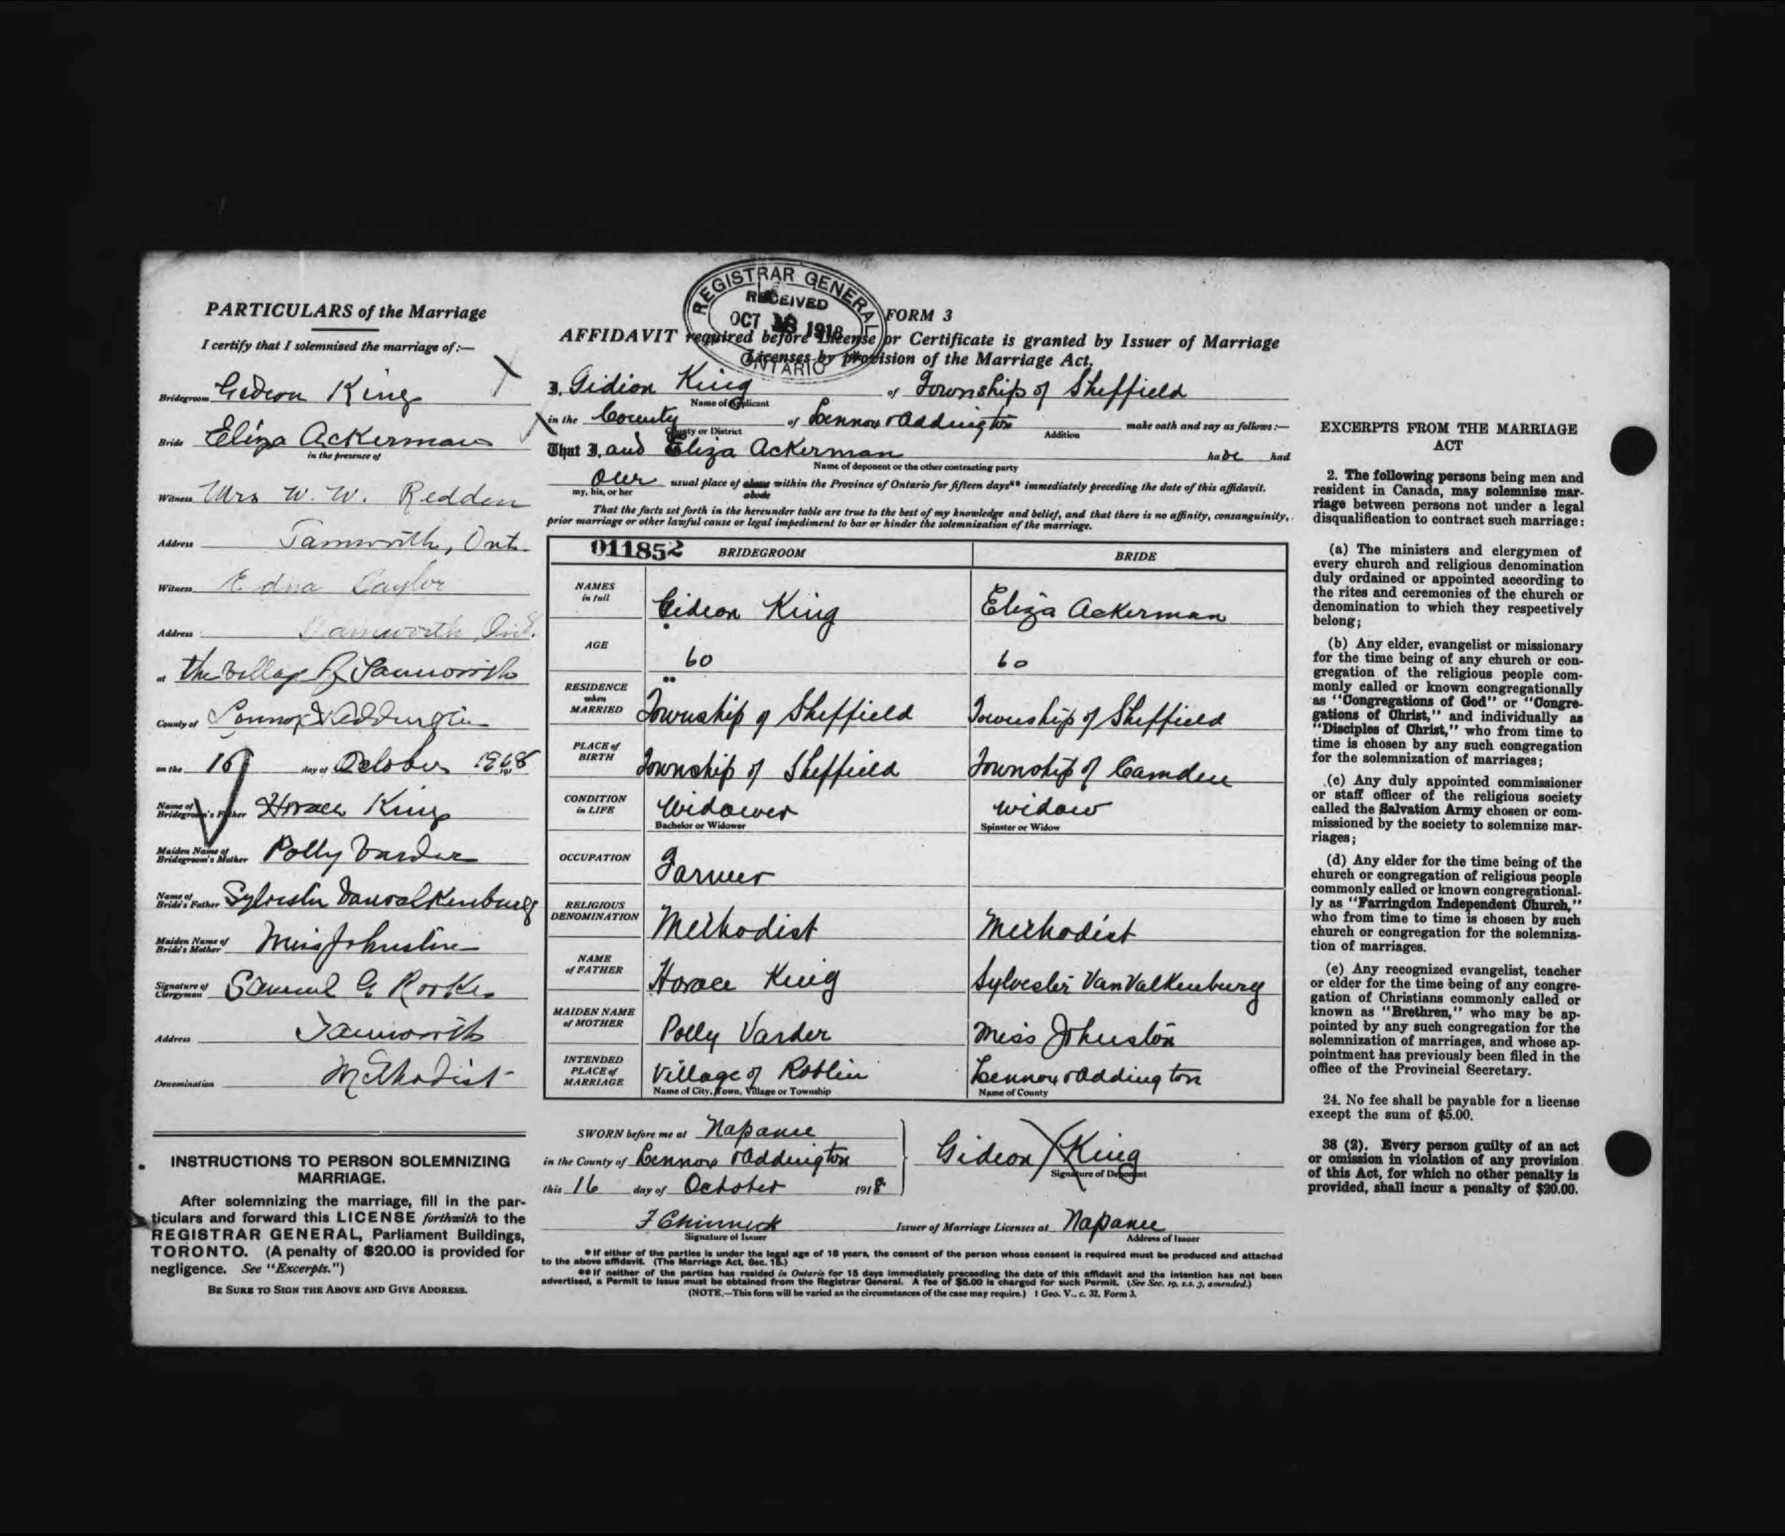 PARTICULARS of the Marriage
I certify that I solemnised the marriage of:—
Bridegroom Gideon King
Bride Eliza Ackerman
in the presence of
Witness Mrs W. W. Redden
Address Tamworth, Ont.
Witness Edna Taylor
Address Tamworth, Ont.
at the village of Tamworth
County of Lennox & Addington
on the 16 day of October 1918
Name of Bridegroom's Father Horace King
Maiden Name of Bridegroom's Mother Polly Varder
Name of Bride's Father Sylvester Vanvalkenburg
Maiden Name of Bride's Mother Miss Johnston
Signature of Clergyman Samuel G Rorke
Address Tamworth
Denomination Methodist
INSTRUCTIONS TO PERSON SOLEMNIZING
MARRIAGE.
After solemnizing the marriage, fill in the par-
ticulars and forward this LICENSE forthwith to the
REGISTRAR GENERAL, Parliament Buildings,
TORONTO. (A penalty of $20.00 is provided for
negligence. See "Excerpts.")
BE SURE TO SIGN THE ABOVE AND GIVE ADDRESS.
REGISTRAR GENERAL
RECEIVED
OCT 1918
ONTARIO
FORM 3
AFFIDAVIT required before License or Certificate is granted by Issuer of Marriage
Licenses by provision of the Marriage Act.
I, Gidion King of Township of Sheffield
Name of Applicant
in the County of Lennox & Addington make oath and say as follows:—
County or District Addition
That I, and Eliza Ackerman have had
Name of deponent or the other contracting party
our usual place of abode within the Province of Ontario for fifteen days** immediately preceding the date of this affidavit.
my, his, or her abode
That the facts set forth in the hereunder table are true to the best of my knowledge and belief, and that there is no affinity, consanguinity,
prior marriage or other lawful cause or legal impediment to bar or hinder the solemnization of the marriage.
011852 BRIDEGROOM BRIDE
NAMES in full Gideon King Eliza Ackerman
AGE 60 60
RESIDENCE when MARRIED Township of Sheffield Township of Sheffield
PLACE of BIRTH Township of Sheffield Township of Camden
CONDITION in LIFE Widower widow
Bachelor or Widower Spinster or Widow
OCCUPATION Farmer
RELIGIOUS DENOMINATION Methodist Methodist
NAME of FATHER Horace King Sylvester VanValkenburg
MAIDEN NAME of MOTHER Polly Varder Miss Johnston
INTENDED PLACE of MARRIAGE Village of Roblin Lennox & Addington
Name of City, Town, Village or Township Name of County
SWORN before me at Napanee
in the County of Lennox & Addington
this 16 day of October 1918
Gideon X King
Signature of Deponent
F Chinneck Issuer of Marriage Licenses at Napanee
Signature of Issuer Address of Issuer
*If either of the parties is under the legal age of 18 years, the consent of the person whose consent is required must be produced and attached
to the above affidavit. (The Marriage Act, Sec. 15.)
**If neither of the parties has resided in Ontario for 15 days immediately preceeding the date of this affidavit and the intention has not been
advertised, a Permit to Issue must be obtained from the Registrar General. A fee of $5.00 is charged for such Permit. (See Sec. 19, s.s. 3, amended.)
(NOTE.—This form will be varied as the circumstances of the case may require.) 1 Geo. V., c. 32, Form 3.
EXCERPTS FROM THE MARRIAGE
ACT
2. The following persons being men and
resident in Canada, may solemnize mar-
riage between persons not under a legal
disqualification to contract such marriage:
(a) The ministers and clergymen of
every church and religious denomination
duly ordained or appointed according to
the rites and ceremonies of the church or
denomination to which they respectively
belong;
(b) Any elder, evangelist or missionary
for the time being of any church or con-
gregation of the religious people com-
monly called or known congregationally
as "Congregations of God" or "Congre-
gations of Christ," and individually as
"Disciples of Christ," who from time to
time is chosen by any such congregation
for the solemnization of marriages;
(c) Any duly appointed commissioner
or staff officer of the religious society
called the Salvation Army chosen or com-
missioned by the society to solemnize mar-
riages;
(d) Any elder for the time being of the
church or congregation of religious people
commonly called or known congregational-
ly as "Farringdon Independent Church,"
who from time to time is chosen by such
church or congregation for the solemniza-
tion of marriages.
(e) Any recognized evangelist, teacher
or elder for the time being of any congre-
gation of Christians commonly called or
known as "Brethren," who may be ap-
pointed by any such congregation for the
solemnization of marriages, and whose ap-
pointment has previously been filed in the
office of the Provincial Secretary.
24. No fee shall be payable for a license
except the sum of $5.00.
38 (2). Every person guilty of an act
or omission in violation of any provision
of this Act, for which no other penalty is
provided, shall incur a penalty of $20.00.